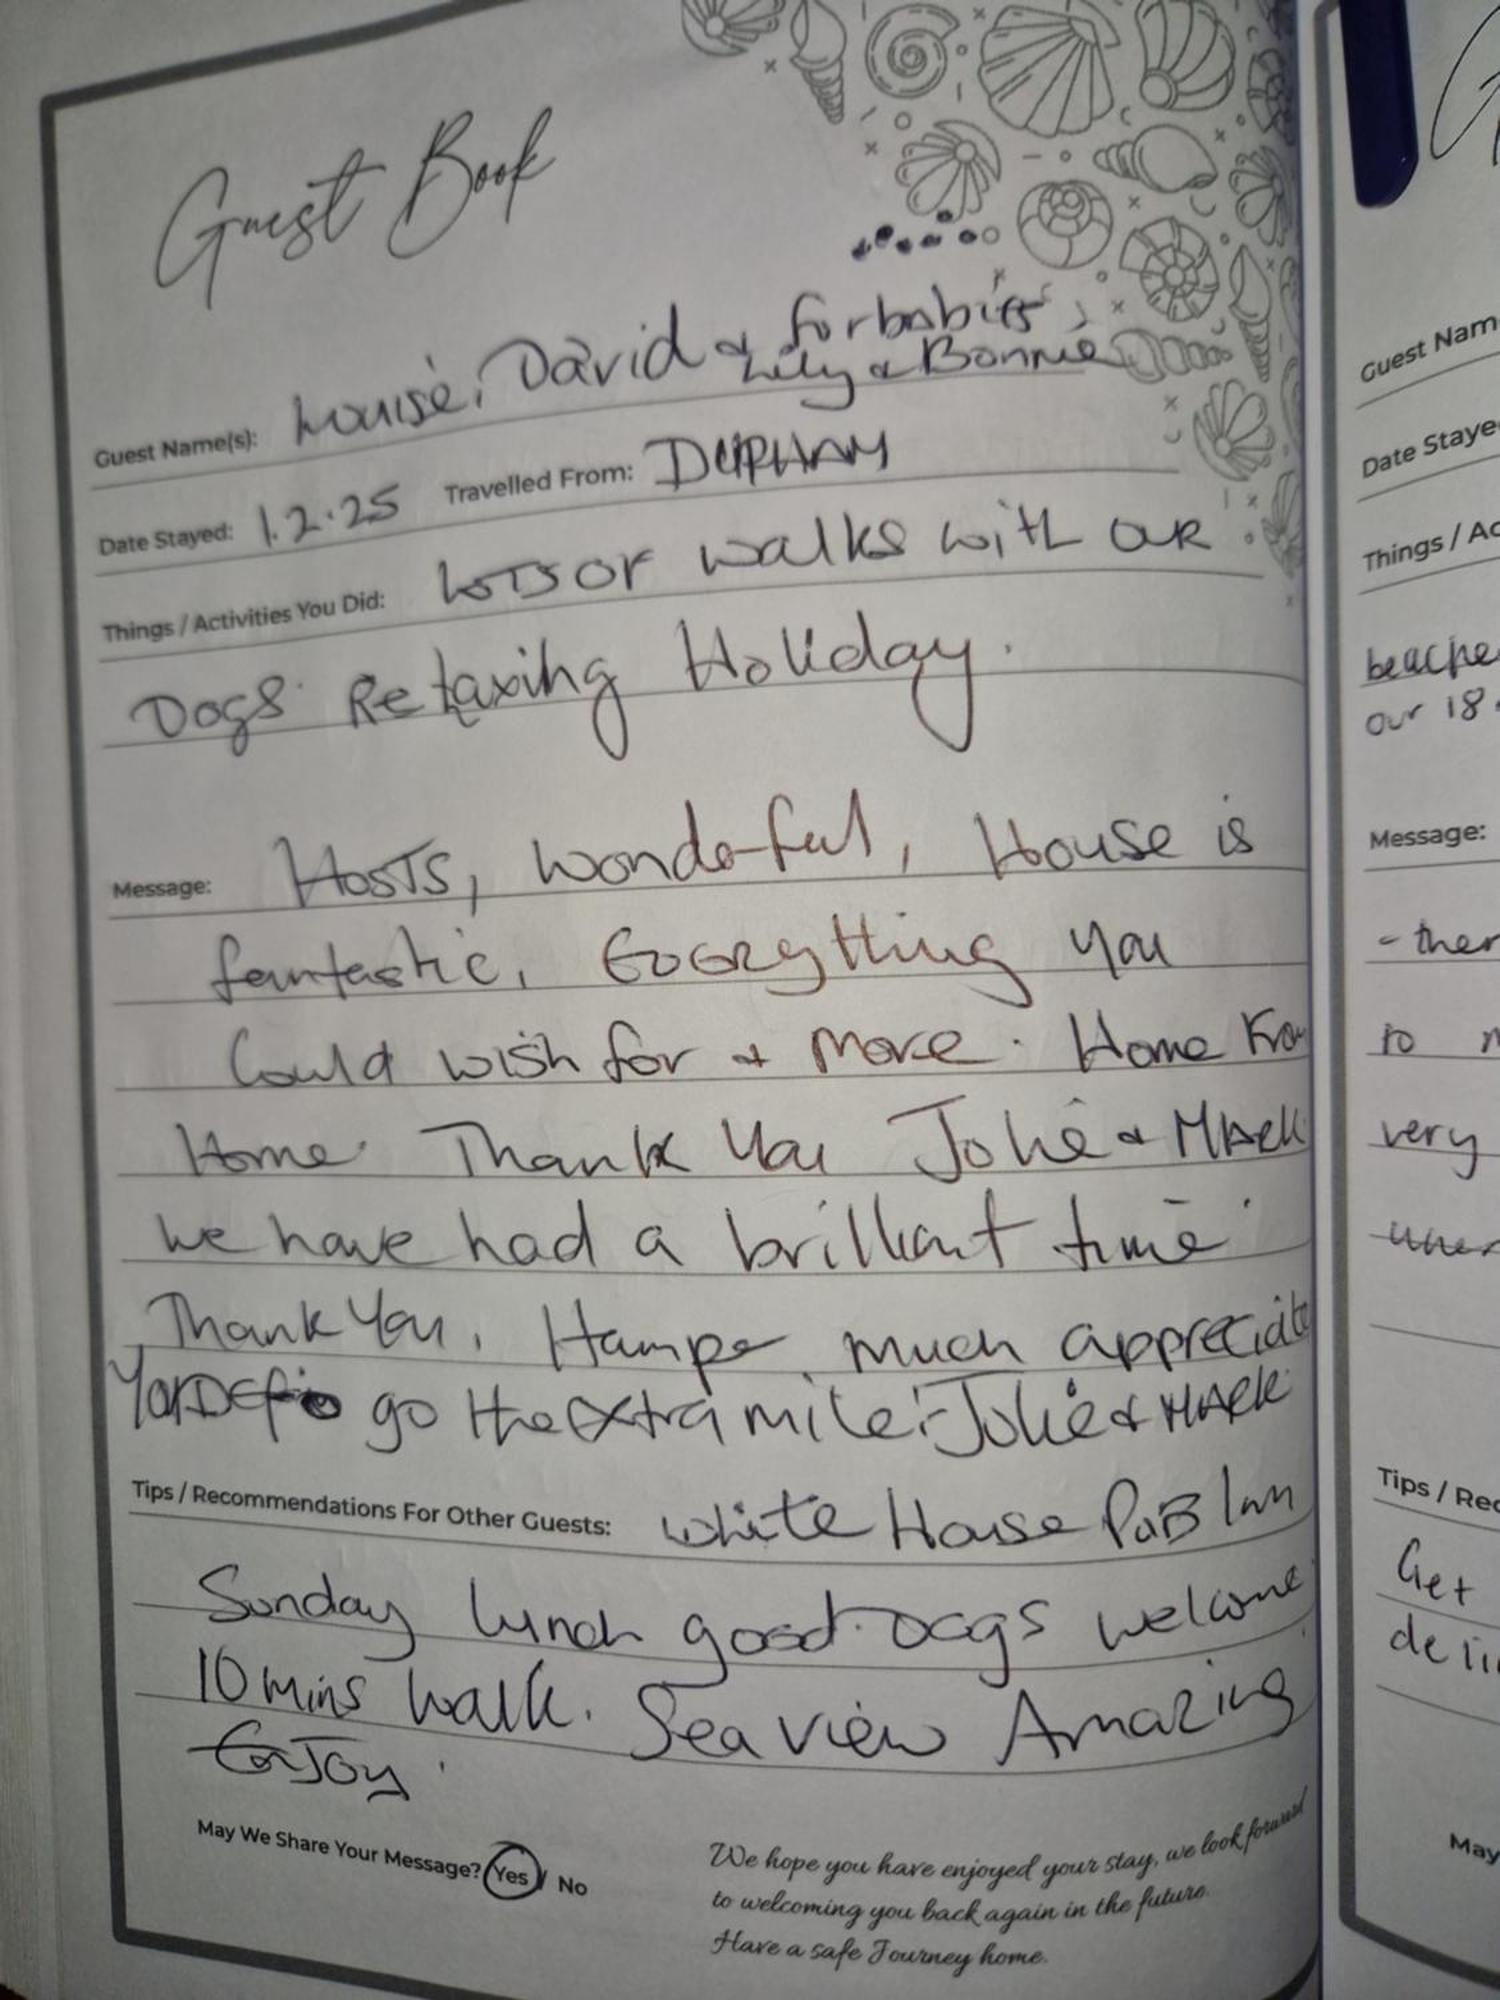 Guest Book
Guest Name(s): Louise, David & furbabies,
Lily & Bonnie
Date Stayed: 1.2.25 Travelled From: DURHAM
Things / Activities You Did: Lots of walks with our
Dogs. Relaxing Holiday.
Message: Hosts, wonderful, House is
fantastic, Everything you
Could wish for & more. Home From
Home. Thank You Jolie & MARK
we have had a brilliant time.
Thank You. Hamper much appreciate
go the extra mile:- Jolie & MARK
Tips / Recommendations For Other Guests: White House PuB Inn
Sunday lunch good. Dogs welcome.
10 mins walk. Sea view Amazing
Enjoy.
May We Share Your Message? Yes / No
We hope you have enjoyed your stay, we look forward
to welcoming you back again in the future.
Have a safe Journey home.
G
Guest Nam
Date Staye
Things / Ac
beache
our 18
Message:
- ther
to
very
Tips / Rec
Get
deli
May